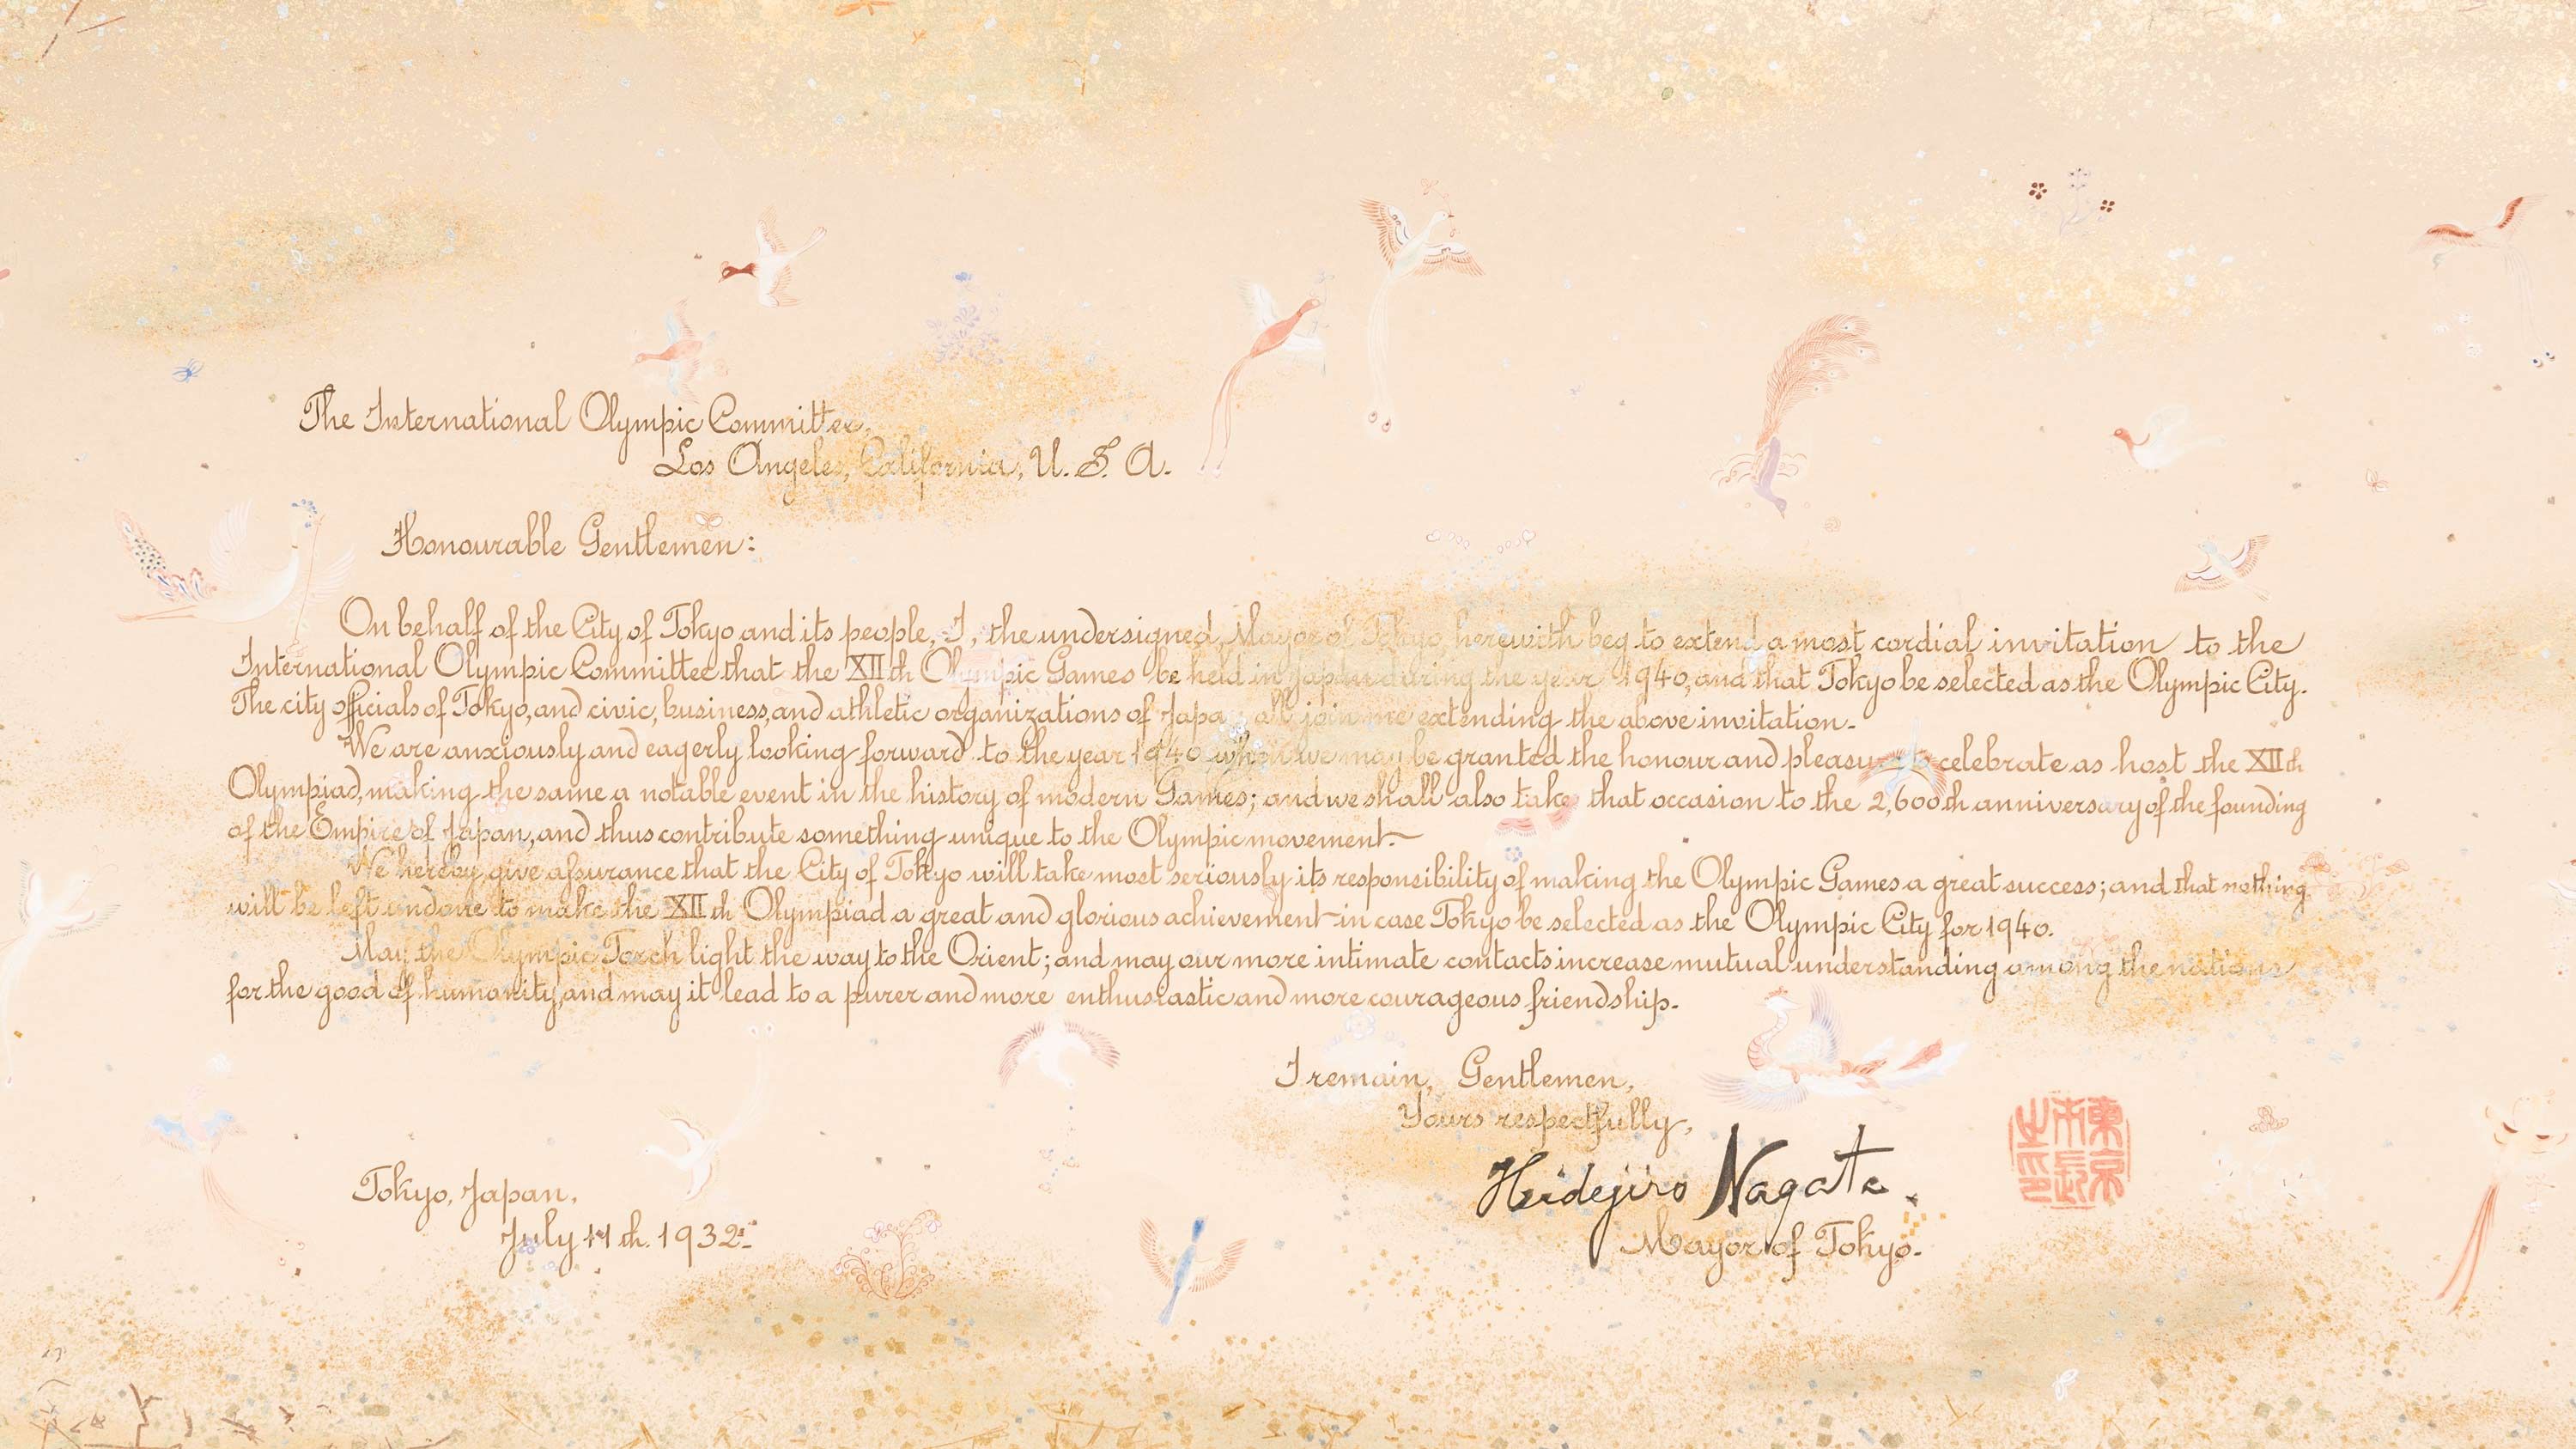 The International Olympic Committee,
Los Angeles, California, U. S. A.
Honourable Gentlemen:
On behalf of the City of Tokyo and its people, I, the undersigned, Mayor of Tokyo, herewith beg to extend a most cordial invitation to the
International Olympic Committee that the XIIth Olympic Games be held in Japan during the year 1940, and that Tokyo be selected as the Olympic City.
The city officials of Tokyo, and civic, business, and athletic organizations of Japan all join me extending the above invitation.
We are anxiously and eagerly looking forward to the year 1940 when we may be granted the honour and pleasure to celebrate as host the XIIth
Olympiad, making the same a notable event in the history of modern Games; and we shall also take that occasion to the 2,600th anniversary of the founding
of the Empire of Japan, and thus contribute something unique to the Olympic movement.
We hereby give assurance that the City of Tokyo will take most seriously its responsibility of making the Olympic Games a great success; and that nothing
will be left undone to make the XIIth Olympiad a great and glorious achievement in case Tokyo be selected as the Olympic City for 1940.
May the Olympic Torch light the way to the Orient; and may our more intimate contacts increase mutual understanding among the nations
for the good of humanity, and may it lead to a purer and more enthusiastic and more courageous friendship.
I remain, Gentlemen,
Yours respectfully,
Heidejiro Nagata.
Mayor of Tokyo.
東京市長之印
Tokyo, Japan,
July 11th. 1932.